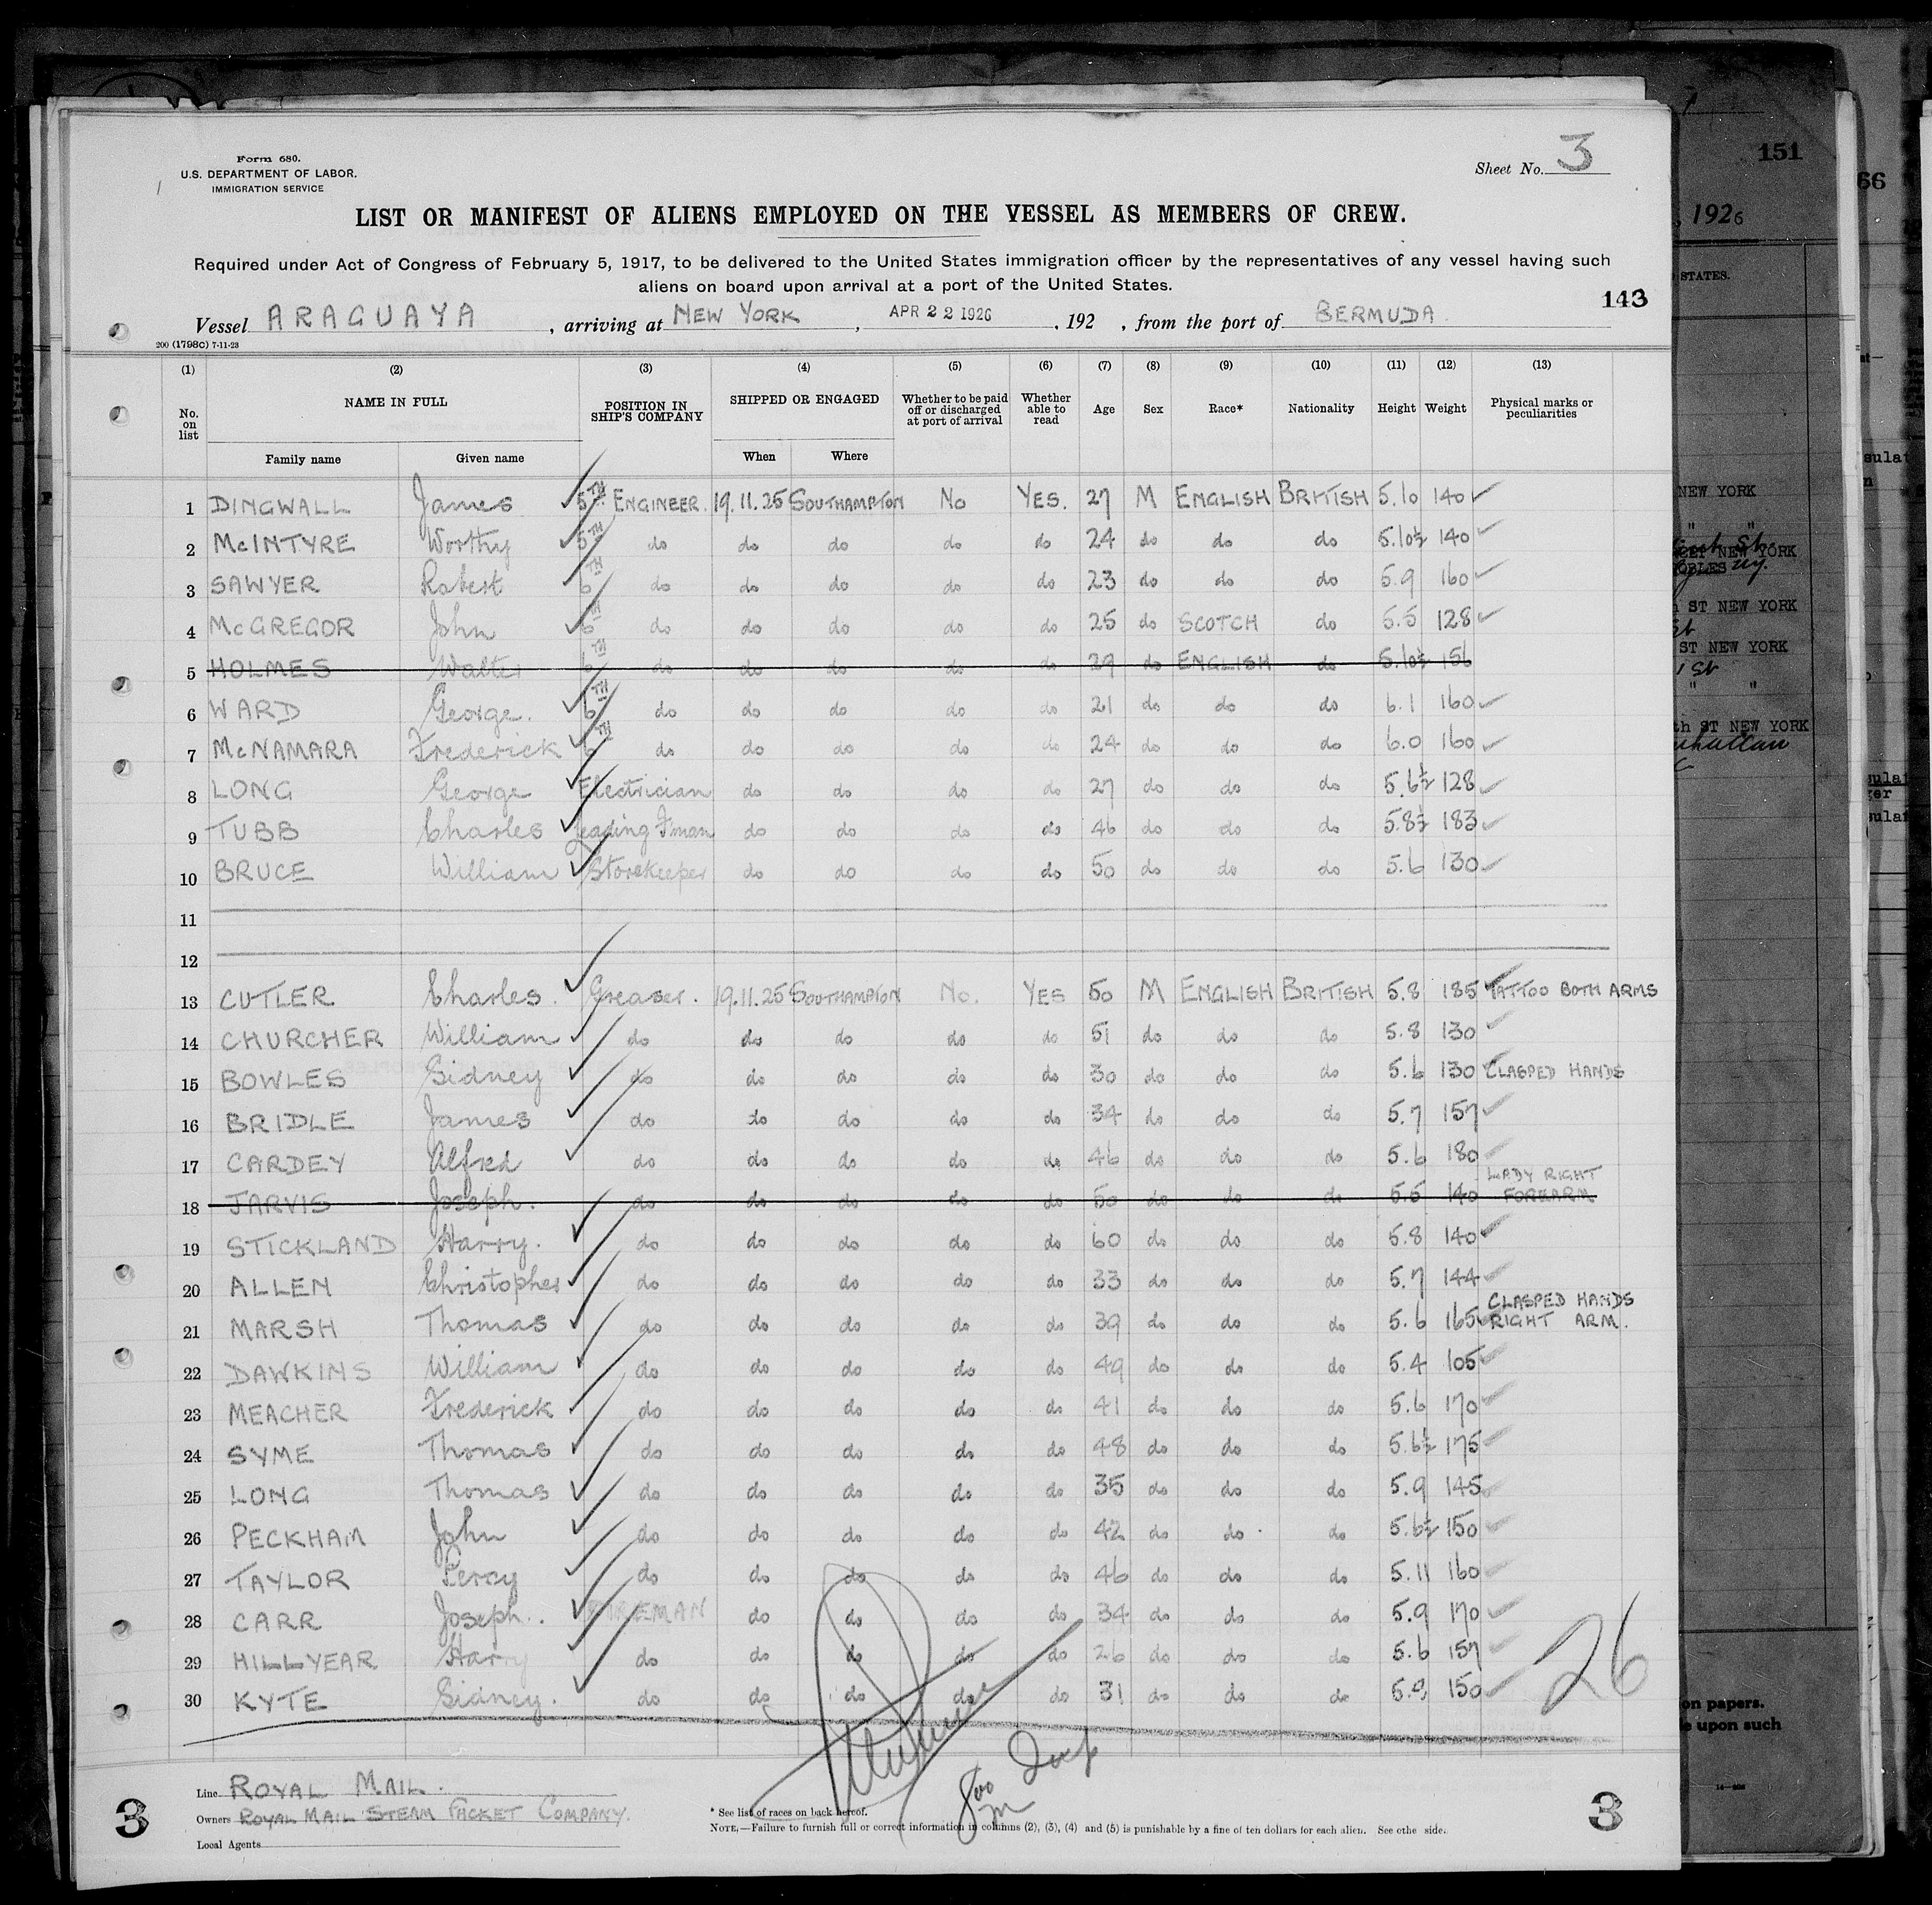 Form 680.
U.S. DEPARTMENT OF LABOR.
IMMIGRATION SERVICE
Sheet No. 3
151
66
, 1926
LIST OR MANIFEST OF ALIENS EMPLOYED ON THE VESSEL AS MEMBERS OF CREW.
Required under Act of Congress of February 5, 1917, to be delivered to the United States immigration officer by the representatives of any vessel having such
aliens on board upon arrival at a port of the United States.
STATES.
143
Vessel ARAGUAYA, arriving at NEW YORK, APR 22 1926, 192 , from the port of BERMUDA
200 (1798C) 7-11-23
(1) (2) (3) (4) (5) (6) (7) (8) (9) (10) (11) (12) (13)
No. on list NAME IN FULL POSITION IN SHIP'S COMPANY SHIPPED OR ENGAGED Whether to be paid off or discharged at port of arrival Whether able to read Age Sex Race* Nationality Height Weight Physical marks or peculiarities
Family name Given name When Where
1 DINGWALL James 5TH ENGINEER. 19.11.25 SOUTHAMPTON No YES. 27 M ENGLISH BRITISH 5.10 140
2 McINTYRE Worthy 5TH do do do do do 24 do do do 5.10½ 140
3 SAWYER Robert 6TH do do do do do 23 do do do 5.9 160
4 McGREGOR John 6TH do do do do do 25 do SCOTCH do 5.5 128
5 HOLMES Walter 6TH do do do do do 39 do ENGLISH do 5.10½ 156
6 WARD George. 6TH do do do do do 21 do do do 6.1 160
7 McNAMARA Frederick 6TH do do do do do 24 do do do 6.0 160
8 LONG George Electrician do do do do 27 do do do 5.6½ 128
9 TUBB Charles Leading F'man do do do do 46 do do do 5.8½ 183
10 BRUCE William Storekeeper do do do do 50 do do do 5.6 130
11
12
13 CUTLER Charles. Greaser. 19.11.25 SOUTHAMPTON No. YES 50 M ENGLISH BRITISH 5.8 185 TATTOO BOTH ARMS
14 CHURCHER William do do do do do 51 do do do 5.8 130
15 BOWLES Sidney do do do do do 30 do do do 5.6 130 CLASPED HANDS
16 BRIDLE James do do do do do 34 do do do 5.7 157
17 CARDEY Alfred do do do do do 46 do do do 5.6 180
18 JARVIS Joseph. do do do do do 50 do do do 5.5 140 LADY RIGHT FOREARM
19 STICKLAND Harry. do do do do do 60 do do do 5.8 140
20 ALLEN Christopher do do do do do 33 do do do 5.7 144
21 MARSH Thomas do do do do do 39 do do do 5.6 165 CLASPED HANDS RIGHT ARM.
22 DAWKINS William do do do do do 49 do do do 5.4 105
23 MEACHER Frederick do do do do do 41 do do do 5.6 170
24 SYME Thomas do do do do do 48 do do do 5.6½ 175
25 LONG Thomas do do do do do 35 do do do 5.9 145
26 PECKHAM John do do do do do 42 do do do 5.6½ 150
27 TAYLOR Percy do do do do do 46 do do do 5.11 160
28 CARR Joseph. FIREMAN do do do do 34 do do do 5.9 170
29 HILLYEAR Harry do do do do do 26 do do do 5.6 157
30 KYTE Sidney. do do do do do 31 do do do 5.9 150
26
NEW YORK
NEW YORK
ST NEW YORK
ST NEW YORK
th ST NEW YORK
on papers.
upon such
Line ROYAL MAIL.
Owners ROYAL MAIL STEAM PACKET COMPANY.
Local Agents
3
3
* See list of races on back hereof.
NOTE.—Failure to furnish full or correct information in columns (2), (3), (4) and (5) is punishable by a fine of ten dollars for each alien. See othe side.